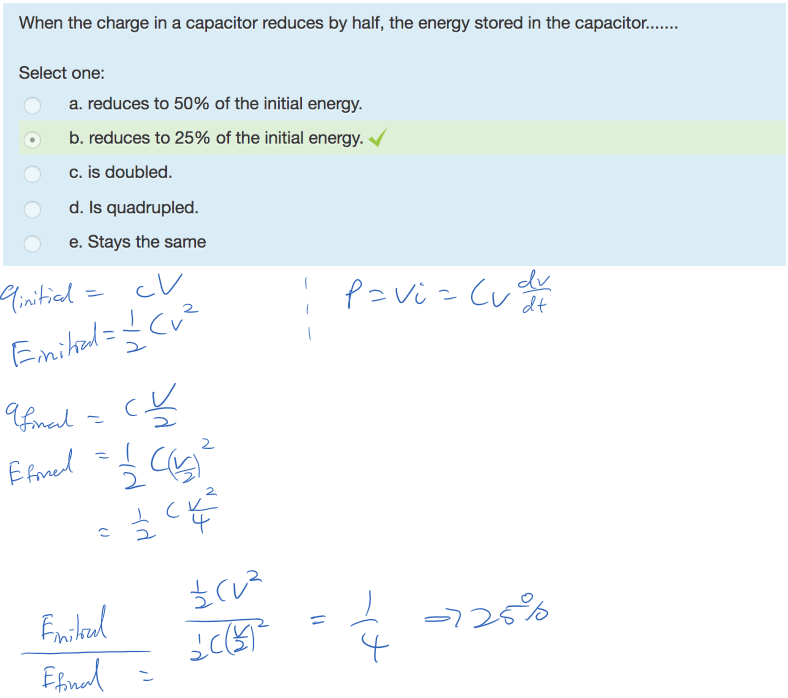 When the charge in a capacitor reduces by half, the energy stored in the capacitor.......
Select one:
a. reduces to 50% of the initial energy.
b. reduces to 25% of the initial energy. ✓
c. is doubled.
d. Is quadrupled.
e. Stays the same
qinitial = CV
P = Vi = CV dv/dt
Einitial = 1/2 CV²
qfinal = C V/2
Efinal = 1/2 C(V/2)²
= 1/2 C V²/4
Einitial/Efinal = 1/2 CV² / 1/2 C(V/2)² = 1/4 => 25%